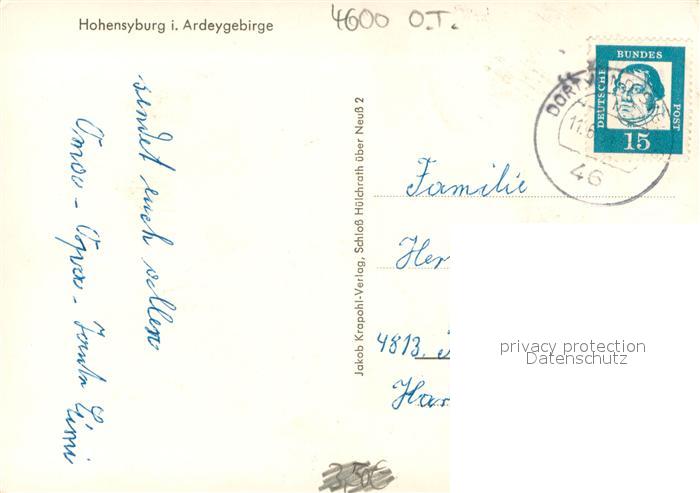 Hohensyburg i. Ardeygebirge
4600 O.T.
sendet euch allen
Omas - Opas - Tante
Jakob Krapohl-Verlag, Schloß Hülchrath über Neuß 2
DEUTSCHE
BUNDES
POST
15
DORT
11.6
46
Familie
Her
4813,
Har
privacy protection
Datenschutz
3,50€